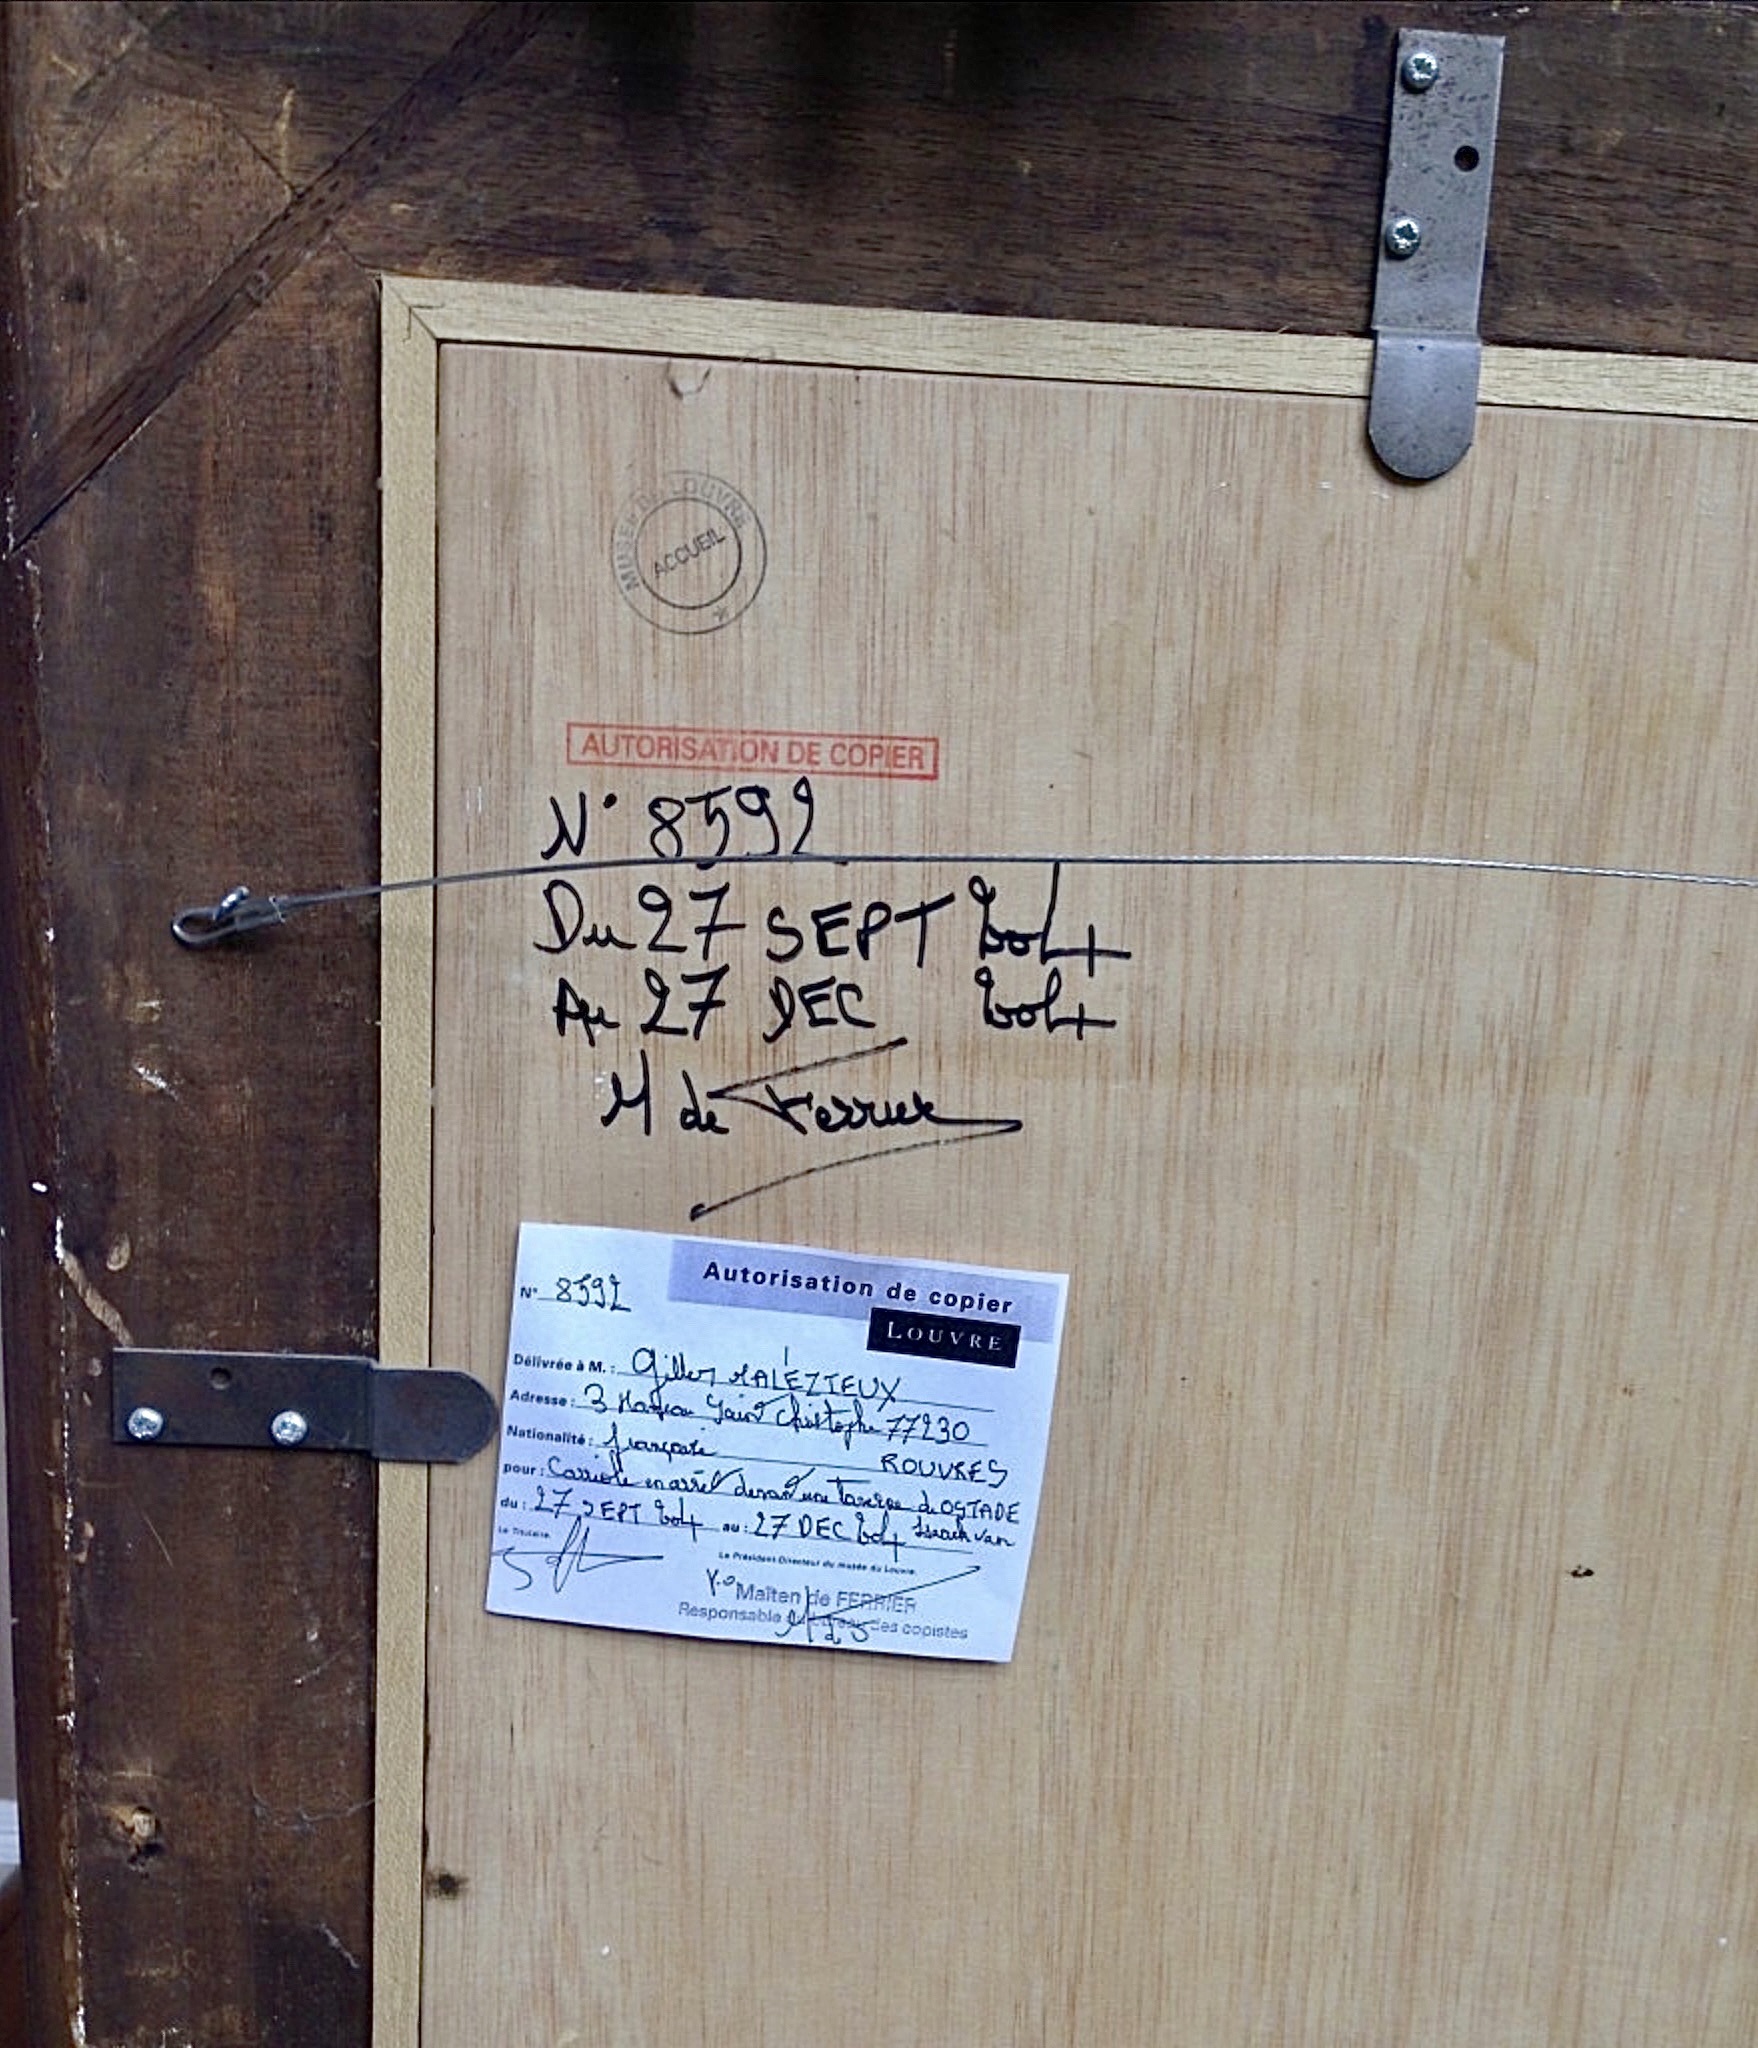 MUSEE DU LOUVRE
ACCUEIL
AUTORISATION DE COPIER
N° 8592
Du 27 SEPT 2014
Au 27 DEC 2014
M de Ferrier
Autorisation de copier
N° 8592
LOUVRE
Délivrée à M. : Gilles MALÉZIEUX
Adresse : 3 Hameau Saint Christophe 77230
ROUVRES
Nationalité : française
pour : Carriole en arrêt devant une Taverne de OSTADE
Isaack van
du : 27 SEPT 2014 au : 27 DEC 2014
Le Titulaire
Le Président-Directeur du musée du Louvre
Maïten de FERRIER
Responsable du bureau des copistes